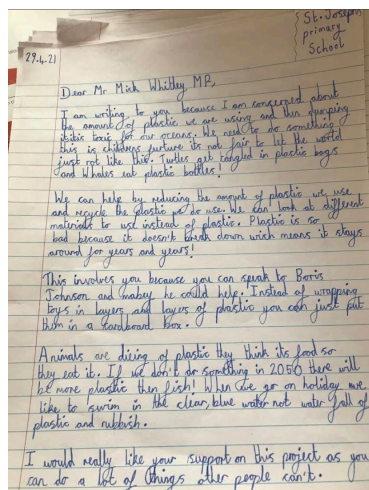 St. Joseph
primary
School
29.4.21
Dear Mr Mick Whitley MP,
I am writing to you because I am concerned about
the amount of plastic we are using and then dumping
it its toxic for our oceans. We need to do something
this is childrens furture its not fair to let the world
just rot like this. Turtles get tangled in plastic bags
and Whales eat plastic bottles!
We can help by reducing the amount of plastic we use
and recycle the plastic we do use. We can look at different
materials to use instead of plastic. Plastic is so
bad because it doesn't break down wich means it stays
around for years and years!
This involves you because you can speak to Boris
Johnson and mabey he could help. Instead of wrapping
toys in layers and layers of plastic you can just put
them in a cardboard box.
Animals are dieing of plastic they think its food so
they eat it. If we don't do something in 2050 there will
be more plastic then fish! When we go on holiday we
like to swim in the clear, blue water not water full of
plastic and rubbish.
I would really like your support on this project as you
can do a lot of things other people can't.